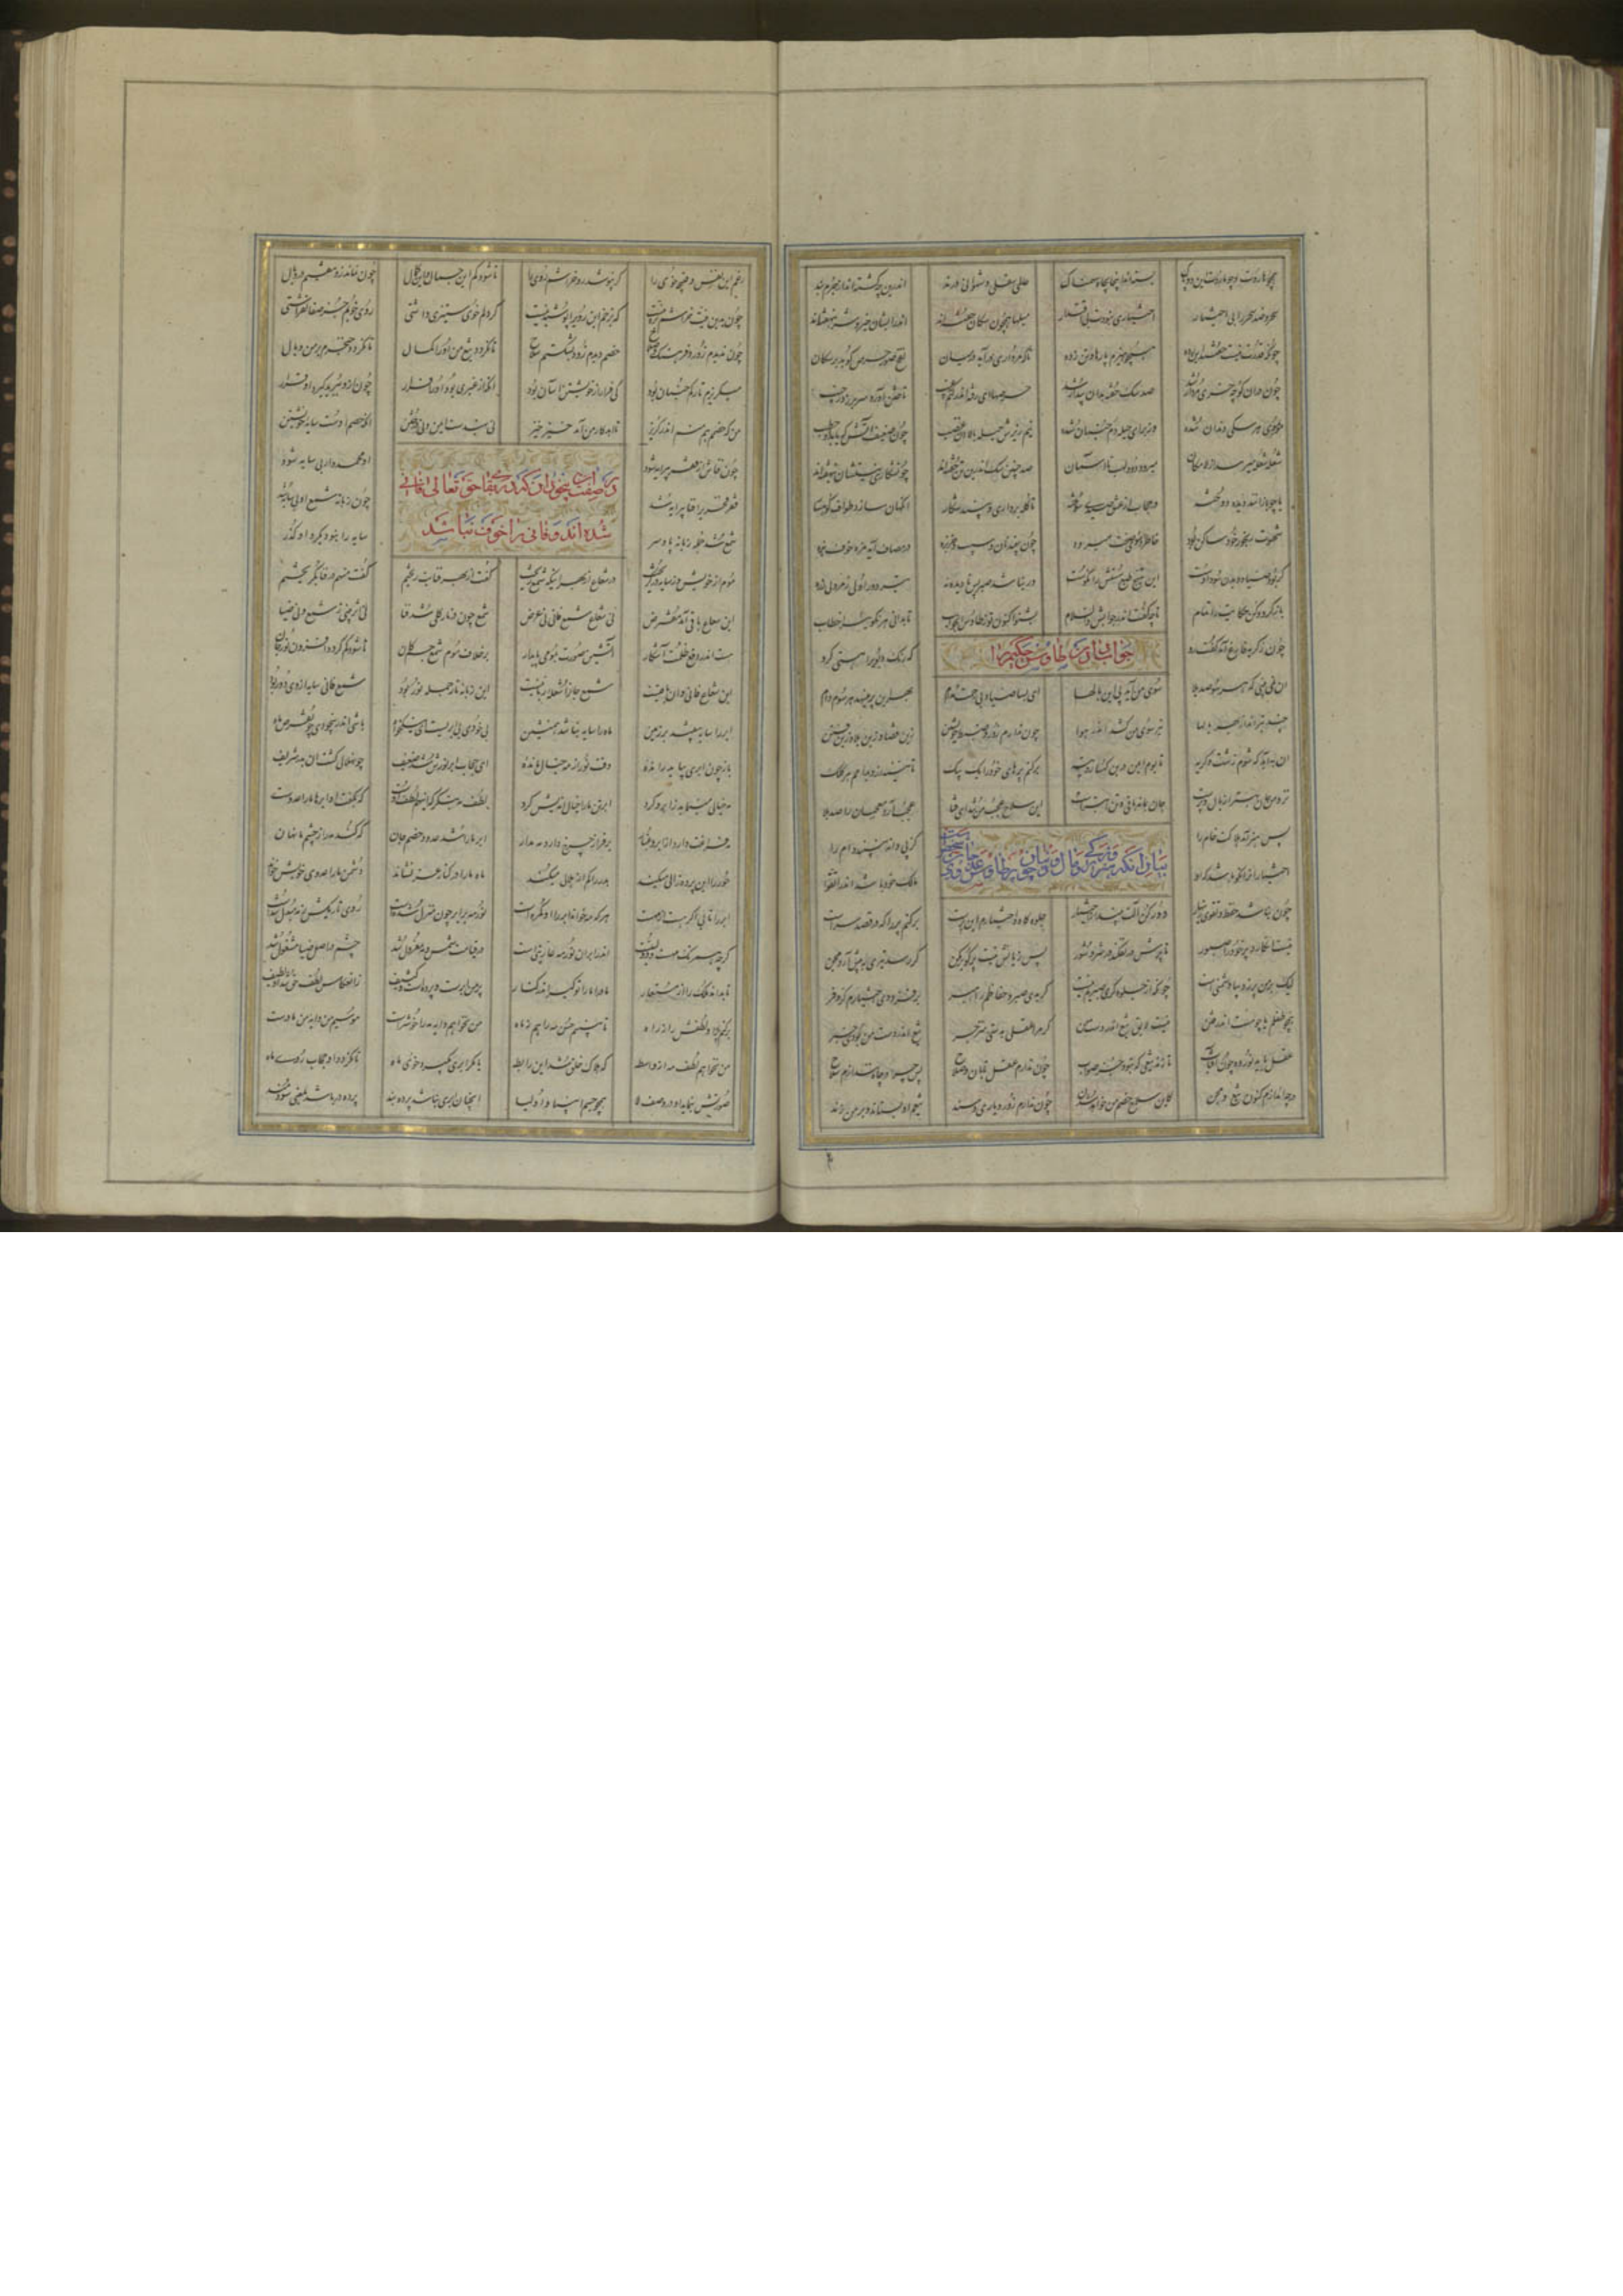 همچو هاروت و چو ماروت این دو پاک بسته‌اند اینجا بچاه سهمناک عالم سفلی و شهوانی درند اندرین چه گشته‌اند از جرم بند
سحر و ضد سحر را بی اختیار میلها همچون سگان خفته‌اند اندر ایشان خیر و شر بنهفته‌اند
چونکه قدرت نیست خفتند این رده همچو هیزم پارها و تن زده تا که مرداری درآید در میان نفخ صور حرص کوبد بر سگان
چون در آن کوچه خری مردار شد صد سگ خفته بدان بیدار شد حرصهای رفته اندر کتم غیب تاختن آورد سر بر زد ز جیب
مو بموی هر سگی دندان شده وز برای حیله دم جنبان شده نیم زیرش حیله بالا آن غضب چون ضعیف آتش که یابد او حطب
شعله شعله میرسد از لامکان میرود دود لهب تا آسمان صد چنین سگ اندرین تن خفته‌اند چون شکاری نیستشان بنهفته‌اند
یا چو بازانند و دیده دوخته در حجاب از عشق صیدی سوخته تا کله برداری و بیند شکار آنگهان سازد طواف کوهسار
شهوت رنجور خود ساکن بود خاطر او سوی صحت میرود چون ببیند نان و سیب و خربزه در مصاف آید مزه و خوف بزه
گر بود صبار دیدن سود اوست این تهیج طبع سستش را نکوست ور نباشد صبر پس نادیده به تیر دور اولی ز مرد بی زره
باز گرد و کن حکایت را تمام تا چه گفت اندر جوابش والسلام بشنو اکنون تو ز طاوس آن جواب تا بدانی هر نکو سر را خطاب
جواب دادن طاوس حکیم را
چون ز گریه فارغ آمد گفت رو که تو رنگ و بوی را هستی گرو
آن نمی‌بینی که هر سو صد بلا سوی من آید پی این بالها ای بسا صیاد بی رحمت مدام بهر این پرها نهد هر سوم دام
چند تیرانداز بهر بالها تیر سوی من کشد اندر هوا چون ندارم زور و ضبط خویشتن زین قضا و زین بلا و زین فتن
آن به آید که شوم زشت و کریه تا بوم ایمن درین کهسار و تیه برکنم پرهای خود را یک بیک
نزد من جان بهتر از بال و پرست جان بماند باقی و تن ابترست این سلاح عجب من شد ای فتا عجب آرد معجبان را صد بلا
بیان آنکه هنرها و زیرکیها و مال دنیا همچون پرهای طاوس عدو جانست
پس هنر آمد هلاکت خام را کز پی دانه نبیند دام را
اختیار آنرا نکو باشد که او مالک خود باشد اندر اتقوا
چون نباشد حفظ و تقوی زینهار دور کن آلت بینداز اختیار جلوه‌گاه و اختیارم این پرست برکنم پر را که در قصد سرست
نیست انگارد پر خود را صبور تا پرش در نفکند در شر و شور پس زیانش نیست پر گو بر مکن گر رسد تیری بپیش آرد مجن
لیک بر من پر زیبا دشمنی است چونکه از جلوه‌گری صبریم نیست گر بدی صبر و حفاظم راهبر بر فزودی ز اختیارم کر و فر
همچو طفلم یا چو مست اندر فتن نیست لایق تیغ اندر دست من گر مرا عقلی بدی منزجر تیغ اندر دست من بودی ظفر
عقل باید نورده چون آفتاب تا زند تیغی که نبود جز صواب چون ندارم عقل تابان و صلاح پس چرا در چاه نندازم سلاح
در چه اندازم کنون تیغ و مجن کاین سلاح خصم من خواهد شدن چون ندارم زور و یاری و سند تیغم او بستاند و بر من زند
رغم این نفس وقیحه خوی را گر نپوشد رو خراشم روی را تا شود کم این جمال و این کمال چون نماند رو نیفتم در وبال
چون بدین نیت خراشم بزه نیست که بزخم این روی را پوشیدنیست گر دلم خوی ستیری داشتی روی خوبم جز صفا نفراشتی
چون ندیدم زور و فرهنگ و صلاح خصم دیدم زود بشکستم سلاح تا نگردد تیغ من او را کمال تا نگردد خنجرم بر من وبال
میگریزم تا رگم جنبان بود کی فرار از خویشتن آسان بود آنکه از غیری بود او را فرار چون ازو ببرید گیرد او قرار
من که خصمم هم منم اندر گریز تا ابد کار من آمد خیز خیز نی بهندست ایمن و نی در ختن آنکه خصم اوست سایه خویشتن
در صفت آن بیخودان که در بقای حق تعالی فانی شده‌اند و فانی را خوف نباشد
چون فناش از فقر پیرایه شود او محمدوار بی سایه شود
فقر فخری را فنا پیرایه شد چون زبانه شمع او بی سایه شد
شمع شد جمله زبانه پا و سر سایه را نبود بگرد او گذر
موم از خویش و ز سایه در گریخت در شعاع از بهر اینکه شمع ریخت گفت از بهر فنایت ریختم گفت من هم در فنا بگریختم
این شعاع باقی آمد مفترض نی شعاع شمع فانی عرض شمع چون در نار کلی شد فنا نی اثر بینی ز شمع و نی ضیا
هست اندر دفع ظلمت آشکار آتشین صورت بمومی پایدار برخلاف موم شمع جسم کان تا شود کم گردد افزون نور جان
این شعاع فانی و آن باقیست شمع جان را شعله ربانیست این زبانه تا جمله نور بود سایه فانی شدن زو دور بود
ابر را سایه بیفتد بر زمین ماه را سایه نباشد همنشین بی خودی بی ابریست ای نیکخواه باشی اندر بیخودی چون قرص ماه
باز چون ابری بیاید رانده رفت نور از مه خیالی مانده از حجاب ابر نورش شد ضعیف چون هلالی گشت آن بدر شریف
مه خیالی مینماید ز ابر و گرد ابر تن ما را خیال اندیش کرد لطف مه بنگر که اینهم لطف اوست که بگفت او ابرها ما را عدوست
مه فراغت دارد از ابر و غبار بر فراز چرخ دارد مه مدار ابر ما را شد عدو و خصم جان که کند مه را ز چشم ما نهان
حور را این پرده زالی میکند بدر را کم از هلالی میکند ماه ما را در کنار عز نشاند دشمن ما را عدوی خویش خواند
ابر را تابی اگر هست از مهست هر که مه خواند ابر را او گمرهست نور مه بر ابر چون منزل شدست روی تاریکش ز مه مبدل شدست
گرچه همرنگ مهست و دولتیست اندر ابر آن نور مه عاریتیست در قیامت شمس و مه معزول شد چشم در اصل ضیا مشغول شد
تا بداند ملک را از مستعار پرده من ابرست و پرده‌است و کثیف ز انعکاس لطف حق شد او لطیف
برکنم پر را و لطفش را ز راه تا ببینم حسن مه را هم ز ماه من نخواهم دایه مادر خوشترست موسیم من دایه من مادرست
من نخواهم لطف مه از واسطه که هلاک خلق شد این رابطه یا مگر ابری بگیرد خوی ماه تا نگردد او حجاب روی ماه
صورتش بنماید او در وصف لا همچو جسم انبیا و اولیا آنچنان ابری نباشد پرده‌بند پرده‌در باشد بمعنی سودمند